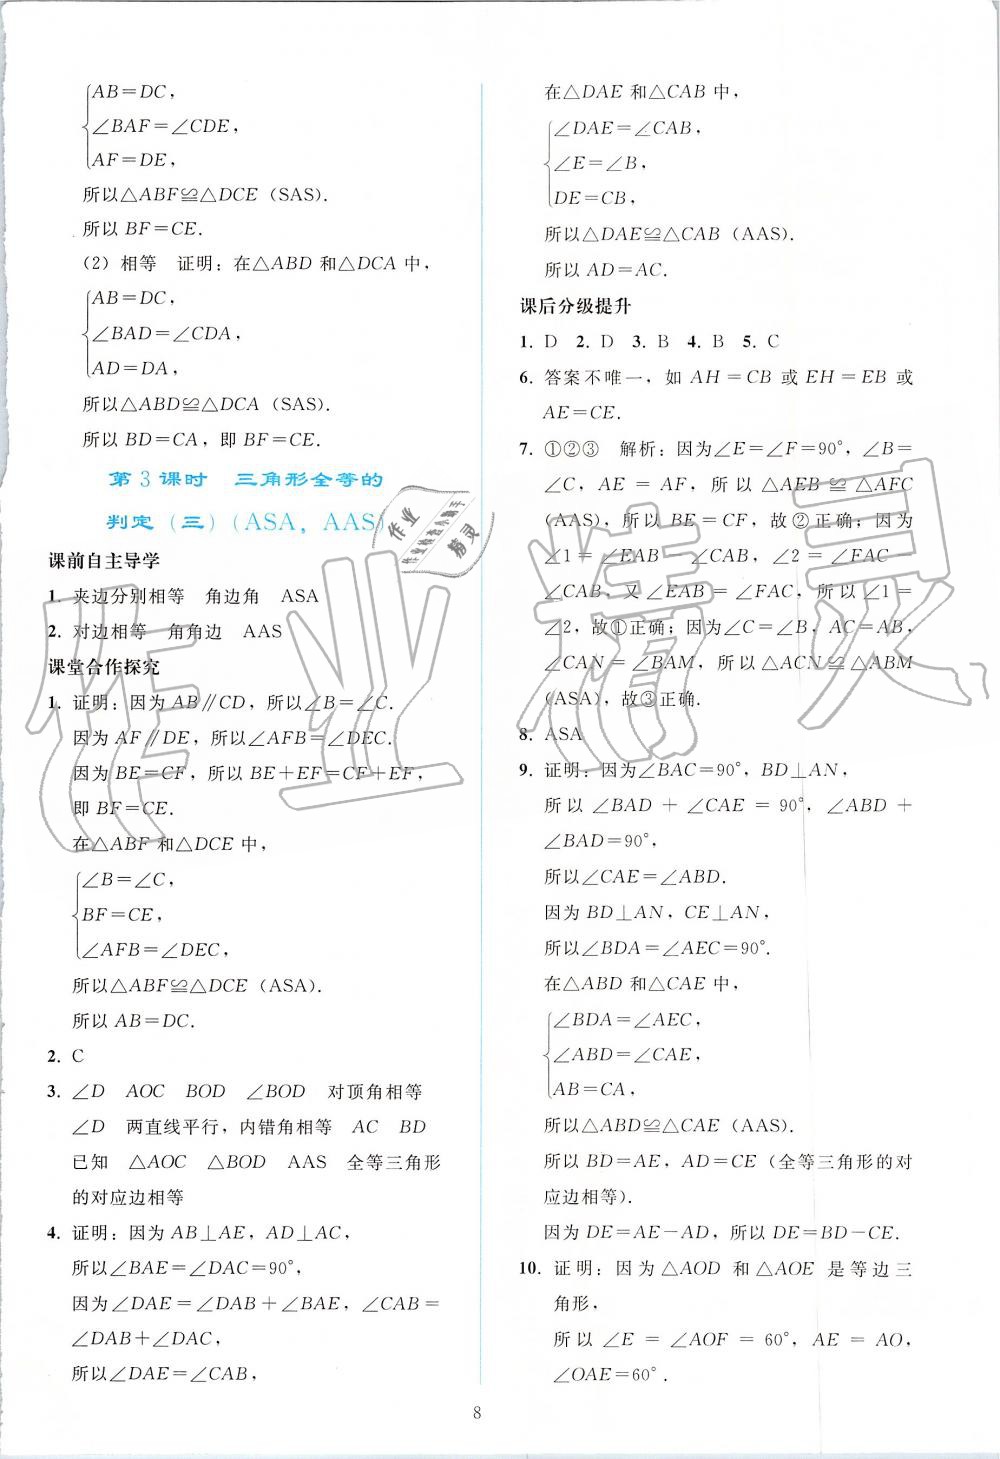 AB=DC，
∠BAF=∠CDE，
AF=DE，
所以△ABF≌△DCE（SAS）.
所以 BF=CE.
（2）相等　证明：在△ABD 和△DCA 中，
AB=DC，
∠BAD=∠CDA，
AD=DA，
所以△ABD≌△DCA（SAS）.
所以 BD=CA，即 BF=CE.
第 3 课时　三角形全等的
判定（三）（ASA，AAS）
课前自主导学
1. 夹边分别相等　角边角　ASA
2. 对边相等　角角边　AAS
课堂合作探究
1. 证明：因为 AB∥CD，所以∠B=∠C.
因为 AF∥DE，所以∠AFB=∠DEC.
因为 BE=CF，所以 BE+EF=CF+EF，
即 BF=CE.
在△ABF 和△DCE 中，
∠B=∠C，
BF=CE，
∠AFB=∠DEC，
所以△ABF≌△DCE（ASA）.
所以 AB=DC.
2. C
3. ∠D　AOC　BOD　∠BOD　对顶角相等
∠D　两直线平行，内错角相等　AC　BD
已知　△AOC　△BOD　AAS　全等三角形
的对应边相等
4. 证明：因为 AB⊥AE，AD⊥AC，
所以∠BAE=∠DAC=90°，
因为∠DAE=∠DAB+∠BAE，∠CAB=
∠DAB+∠DAC，
所以∠DAE=∠CAB，
在△DAE 和△CAB 中，
∠DAE=∠CAB，
∠E=∠B，
DE=CB，
所以△DAE≌△CAB（AAS）.
所以 AD=AC.
课后分级提升
1. D　2. D　3. B　4. B　5. C
6. 答案不唯一，如 AH=CB 或 EH=EB 或
AE=CE.
7. ①②③　解析：因为∠E=∠F=90°，∠B=
∠C，AE = AF，所以 △AEB ≌ △AFC
(AAS)，所以 BE=CF，故②正确；因为
∠1 = ∠EAB − ∠CAB，∠2 = ∠FAC −
∠CAB，又∠EAB=∠FAC，所以∠1=
∠2，故①正确；因为∠C=∠B，AC=AB，
∠CAN=∠BAM，所以△ACN≌△ABM
(ASA)，故③正确.
8. ASA
9. 证明：因为∠BAC=90°，BD⊥AN，
所以 ∠BAD + ∠CAE = 90°，∠ABD +
∠BAD=90°，
所以∠CAE=∠ABD.
因为 BD⊥AN，CE⊥AN，
所以∠BDA=∠AEC=90°.
在△ABD 和△CAE 中，
∠BDA=∠AEC，
∠ABD=∠CAE，
AB=CA，
所以△ABD≌△CAE（AAS）.
所以 BD=AE，AD=CE（全等三角形的对
应边相等）.
因为 DE=AE−AD，所以 DE=BD−CE.
10. 证明：因为△AOD 和△AOE 是等边三
角形，
所以∠E = ∠AOF = 60°，AE = AO，
∠OAE=60°.
8
作业精灵
作业
精灵